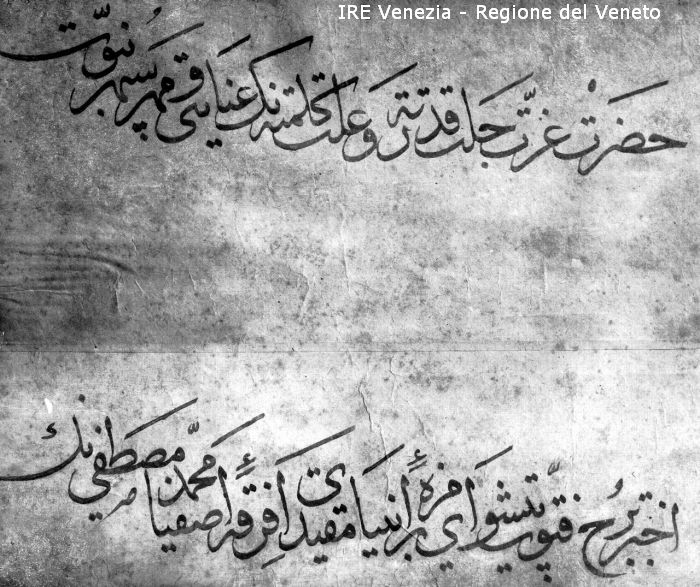 IRE Venezia - Regione del Veneto
حضرت عزّت جلت قدرته وعلت كلمته نك عنايتى و مهر سپهر نبوّت
اختر برج فتوّت پيشواى زمرهٔ انبيا مقتداى فرقهٔ اصفيا محمّد مصطفى نك